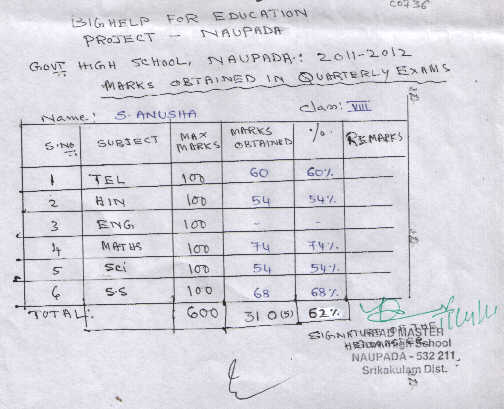 C0736
BIGHELP FOR EDUCATION
PROJECT - NAUPADA
GOVT HIGH SCHOOL, NAUPADA: 2011-2012
MARKS OBTAINED IN QUARTERLY EXAMS
Name: S. ANUSHA Class: VIII
S.No SUBJECT MAX MARKS MARKS OBTAINED % REMARKS
1 TEL 100 60 60%
2 HIN 100 54 54%
3 ENG 100 - -
4 MATHS 100 74 74%
5 Sci 100 54 54%
6 S.S 100 68 68%
TOTAL: 600 310(5) 62%
SIGNATURE OF THE
HEADMASTER
HEAD MASTER
High School
NAUPADA - 532 211
Srikakulam Dist.